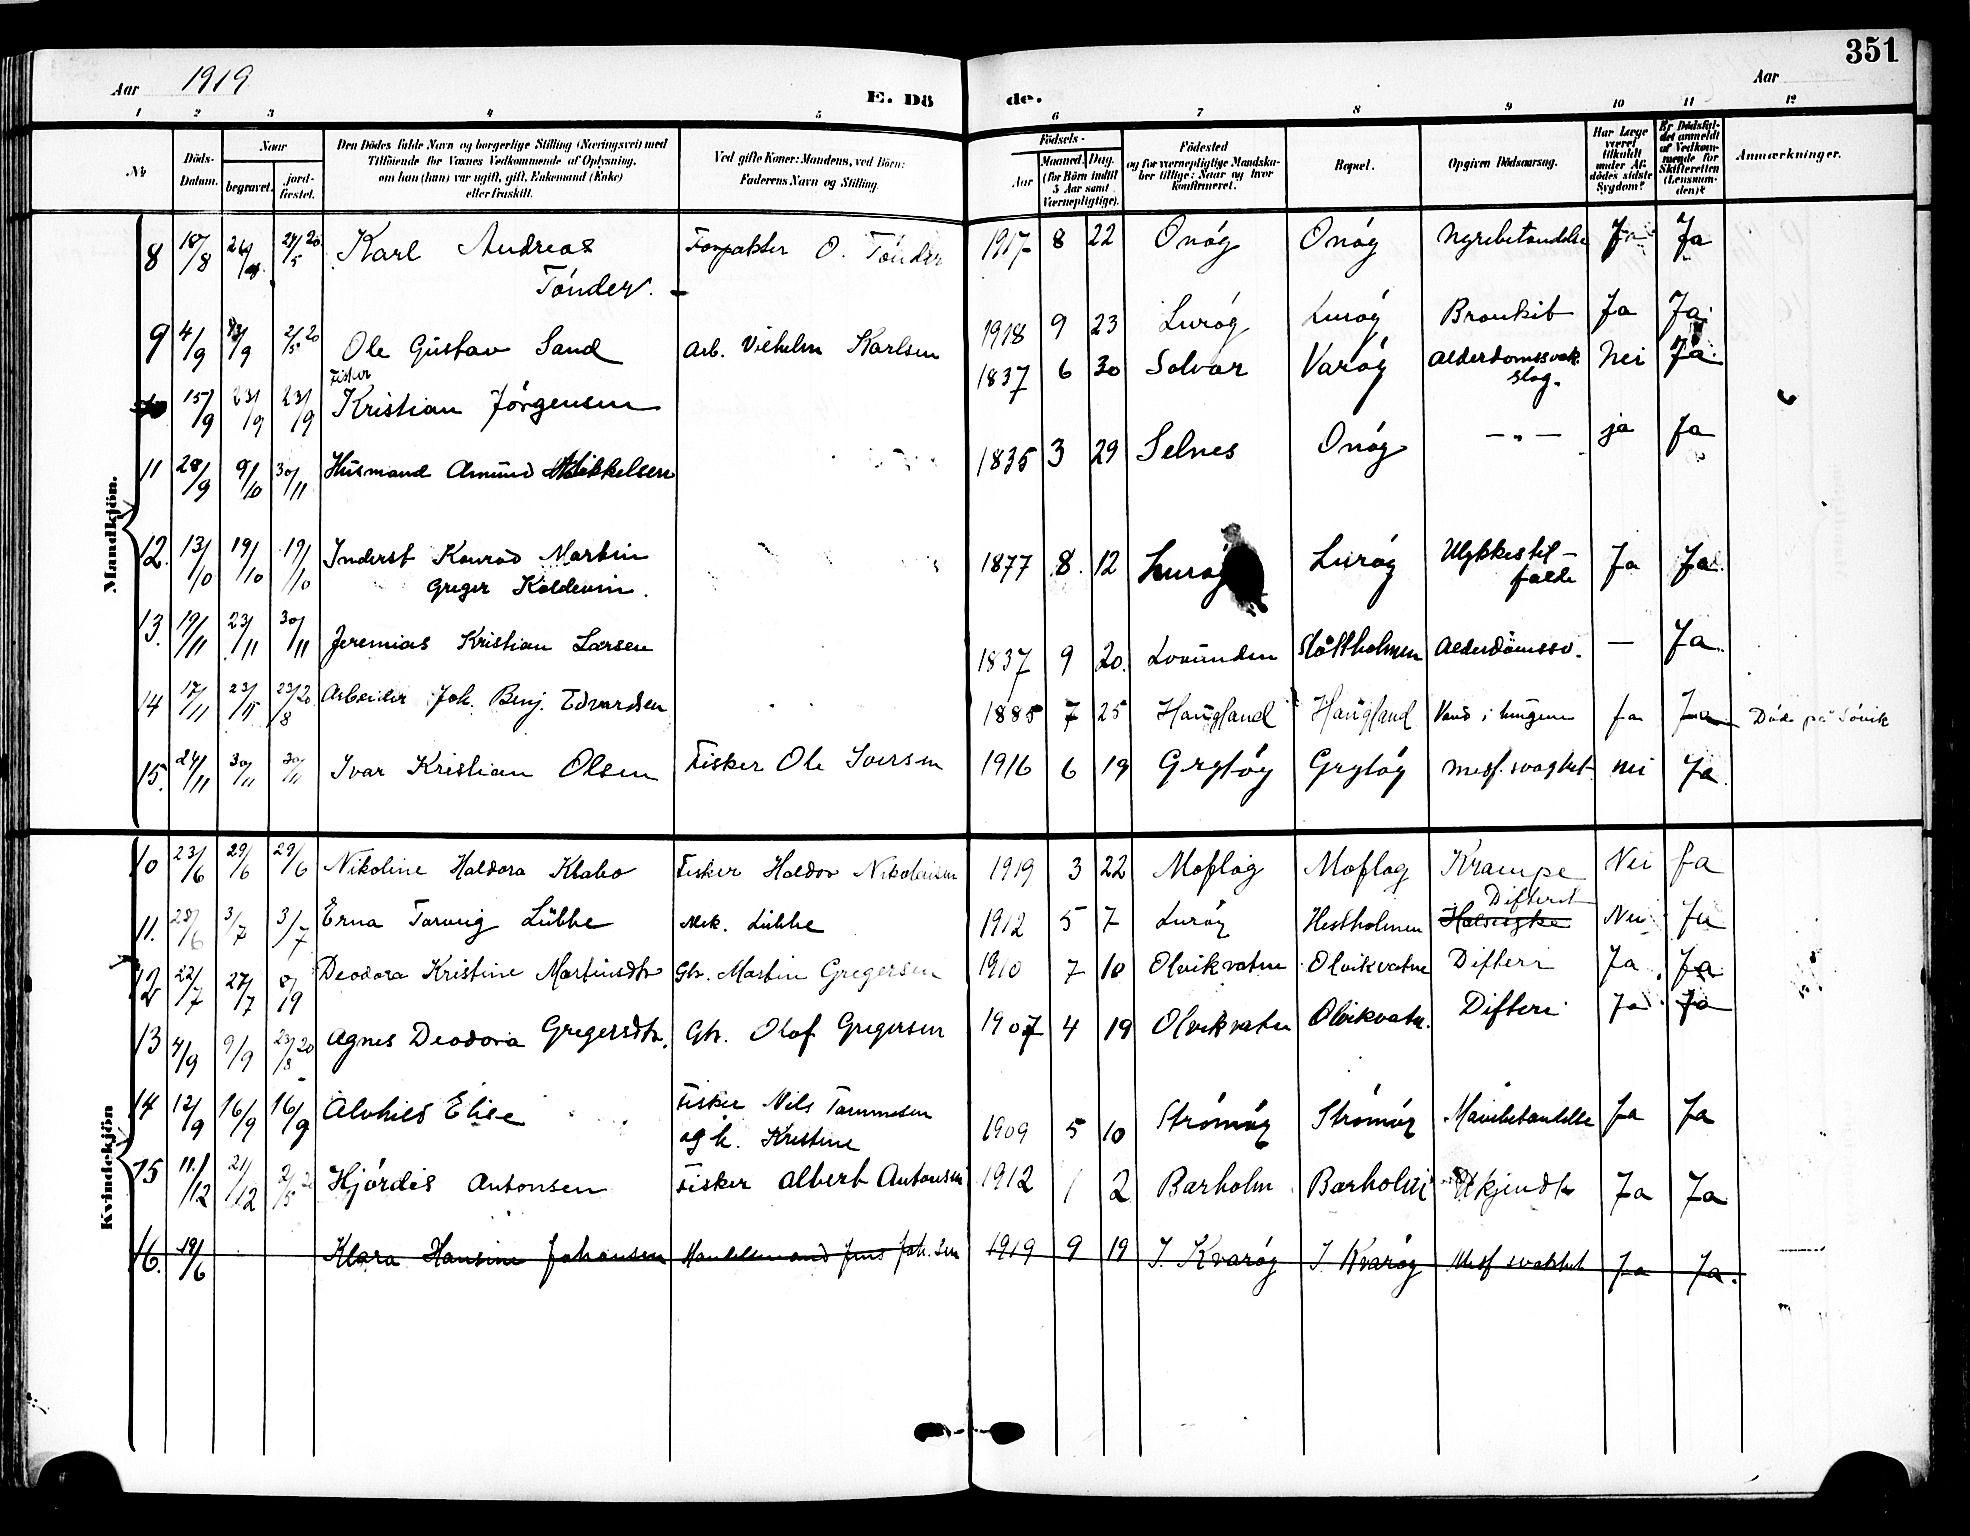 351
Aar 1919
Aar
E. Dö
de.
1 2 3 4 5 6 7 8 9 10 11 12
Nr.
Döds-Datum.
Naar
begravet.
jord-fæstet.
Den Dödes fulde Navn og borgerlige Stilling (Næringsvei) med
Tilföiende for Voxnes Vedkommende af Oplysning,
om han (hun) var ugift, gift, Enkemand (Enke)
eller fraskilt.
Ved gifte Koner: Mandens, ved Börn:
Faderens Navn og Stilling.
Födsels-
Aar
Maaned. Dag.
(for Börn indtil
5 Aar samt
Værnepligtige).
Födested
og for værnepligtige Mandska-
ber tillige: Naar og hvor
konfirmeret.
Bopæl.
Opgiven Dödsaarsag.
Har Læge
været
tilkaldt
under Af-
dödes sidste
Sygdom?
Er Dödsfal-
det anmeldt
af Vedkom-
mende for
Skifteretten
(Lensman-
den)?
Anmærkninger.
Mandkjön.
8 18/8 24/5 20 Karl Andreas Forpakter O. Tönder 1917 8 22 Onöy Onöy Nyrebetændelse Ja Ja
Tönder.
9 4/9 13/9 2/5 20 Ole Gustav Sand Arb. Vilhelm Karlsen 1918 9 23 Luröy Luröy Bronkit Ja Ja
Fisker
10 15/9 23/9 23/9 Kristian Jörgensen 1837 6 30 Solvær Varöy Alderdomssvak Nei Ja
slag.
11 28/9 9/10 30/11 Husmand Amund Mikkelsen 1835 3 29 Selnes Onöy — „ — ja Ja
12. 13/10 19/10 19/10 Inderst Konrad Martin 1877 8. 12 Luröy Luröy Ulykkestil- Ja Ja.
Greger Koldevin. fælde
13. 19/11 23/11 30/11 Jeremias Kristian Larsen 1837 9 20. Lovunden Slöttholmen Alderdömssv. — Ja
14 17/11 23/11 23/8 20 Arbeider Joh. Benj. Edvardsen 1885 7 25 Haugland Haugland Vand i lungene Ja Ja Döde på Sövik
15. 24/11 30/11 30/11 Ivar Kristian Olsen Fisker Ole Iversen 1916 6 19 Grytöy Grytöy Medf. svaghet nei Ja.
Kvindekjön
10 23/6 29/6 29/6 Nikoline Haldora Klabo Fisker Haldor Nikolaisen 1919 3 22 Moflag Moflag Krampe Nei Ja
Difterit
11. 28/6 3/7 3/7 Erna Torvig Lübbe Mek. Lübbe 1912 5 7 Luröy Hestholmen Halssyke Nei Ja
12 22/7 27/7 8/19 Deodora Kristine Martinsdtr Gbr. Martin Gregersen 1910 7 10 Olvikvatne Olvikvatne Difteri Ja. Ja
13 4/9 9/9 23/8 20 Agnes Deodora Gregersdtr. Gbr. Olof Gregersen 1907 4 19 Olvikvatne Olvikvatn. Difteri Ja Ja
14 12/9 16/9 16/9 Alvhild Elise Fisker Nils Tommesen 1909 5 10 Strömöy Strömöy Mavebetændelse Ja Ja
og h. Kristine
15 11/12 21/12 2/5 20 Hjördis Antonsen Fisker Albert Antonsen 1912 1 2 Barholm Barholm Ukjendt Ja Ja
16. 19/6 Klara Hansine Johansen Handelsmand Jens Joh.sen 1919 9 19 I. Kvaröy I Kvaröy Medf svakhet Ja Ja.